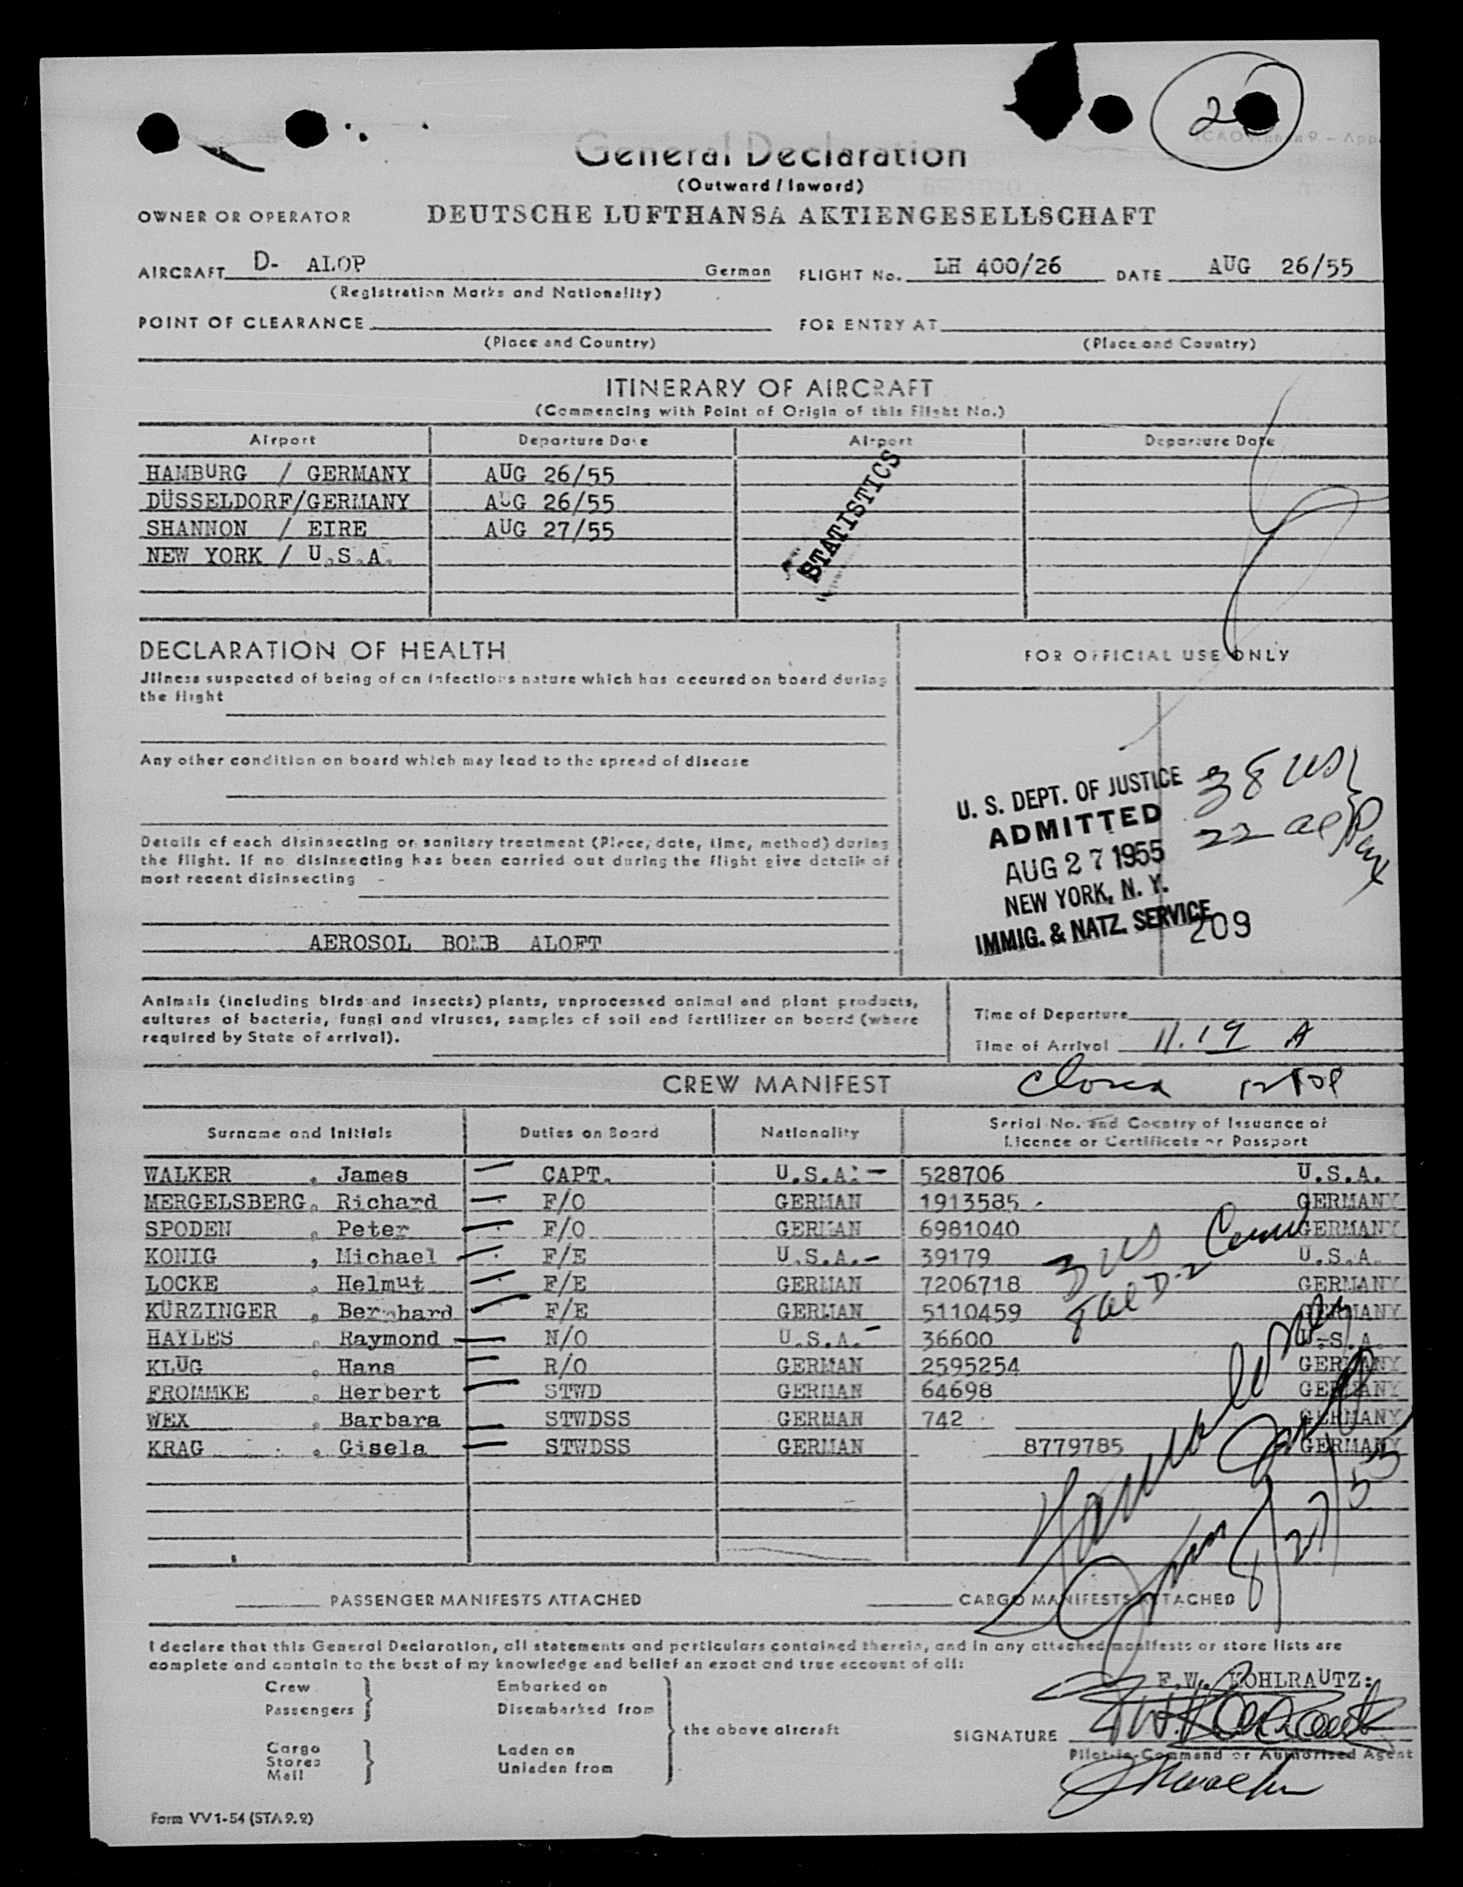 20
General Declaration
(Outward / Inward)
OWNER OR OPERATOR DEUTSCHE LUFTHANSA AKTIENGESELLSCHAFT
AIRCRAFT D- ALOP German FLIGHT No. LH 400/26 DATE AUG 26/55
(Registration Marks and Nationality)
POINT OF CLEARANCE FOR ENTRY AT
(Place and Country) (Place and Country)
ITINERARY OF AIRCRAFT
(Commencing with Point of Origin of this Flight No.)
Airport Departure Date Airport Departure Date
HAMBURG / GERMANY AUG 26/55
DÜSSELDORF/GERMANY AUG 26/55
SHANNON / EIRE AUG 27/55
NEW YORK / U.S.A.
STATISTICS
DECLARATION OF HEALTH
Jllness suspected of being of an infectious nature which has occured on board during
the flight
Any other condition on board which may lead to the spread of disease
Details of each disinsecting or sanitary treatment (Plece, date, time, method) during
the flight. If no disinsecting has been carried out during the flight give details of
most recent disinsecting -
AEROSOL BOMB ALOFT
FOR OFFICIAL USE ONLY
U. S. DEPT. OF JUSTICE
ADMITTED
AUG 27 1955
NEW YORK, N. Y.
IMMIG. & NATZ. SERVICE
209
38 US
22 al Pax
Animals (including birds and insects) plants, unprocessed animal and plant products,
cultures of bacteria, fungi and viruses, samples of soil and fertilizer on board (where
required by State of arrival).
Time of Departure
Time of Arrival 11.19 A
CREW MANIFEST
Surname and Initials Duties on Board Nationality Serial No. and Country of Issuance of
Licence or Certificate or Passport
WALKER , James CAPT. U.S.A. 528706 U.S.A.
MERGELSBERG, Richard F/O GERMAN 1913585 GERMANY
SPODEN , Peter F/O GERMAN 6981040 GERMANY
KONIG , Michael F/E U.S.A. 39179 U.S.A.
LOCKE , Helmut F/E GERMAN 7206718 GERMANY
KÜRZINGER , Bernhard F/E GERMAN 5110459 GERMANY
HAYLES , Raymond N/O U.S.A. 36600 U.S.A.
KLUG , Hans R/O GERMAN 2595254 GERMANY
FROMMKE , Herbert STWD GERMAN 64698 GERMANY
WEX , Barbara STWDSS GERMAN 742 GERMANY
KRAG , Gisela STWDSS GERMAN 8779785 GERMANY
3 US
8 al D-2
8/27/55
PASSENGER MANIFESTS ATTACHED CARGO MANIFESTS ATTACHED
I declare that this General Declaration, all statements and particulars contained therein, and in any attached manifests or store lists are
complete and contain to the best of my knowledge and belief an exact and true account of all:
Crew
Passengers
Cargo
Stores
Mail
Embarked on
Disembarked from
Laden on
Unladen from
the above aircraft
F.W. KOHLRAUTZ:
SIGNATURE
Pilot-in-Command or Authorised Agent
Form VV 1-54 (STA 9.2)